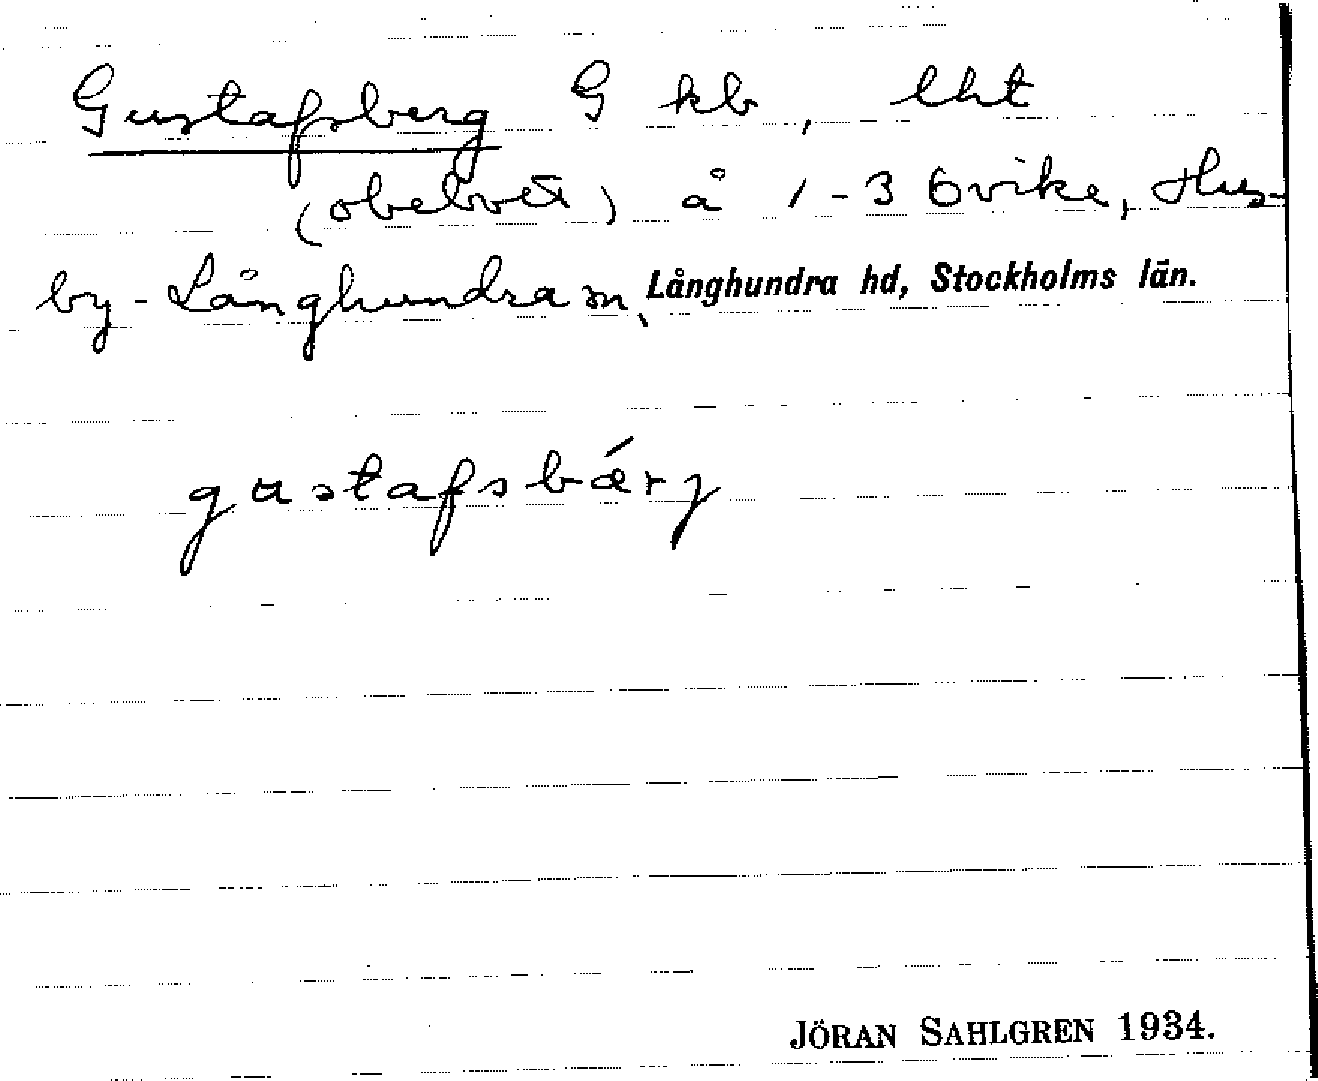 Gustafsberg G kb, lht
(obebott) å 1-3 Ovike, Hus-
by-Långhundra sn, Långhundra hd, Stockholms län.
gustafsbárj
JÖRAN SAHLGREN 1934.